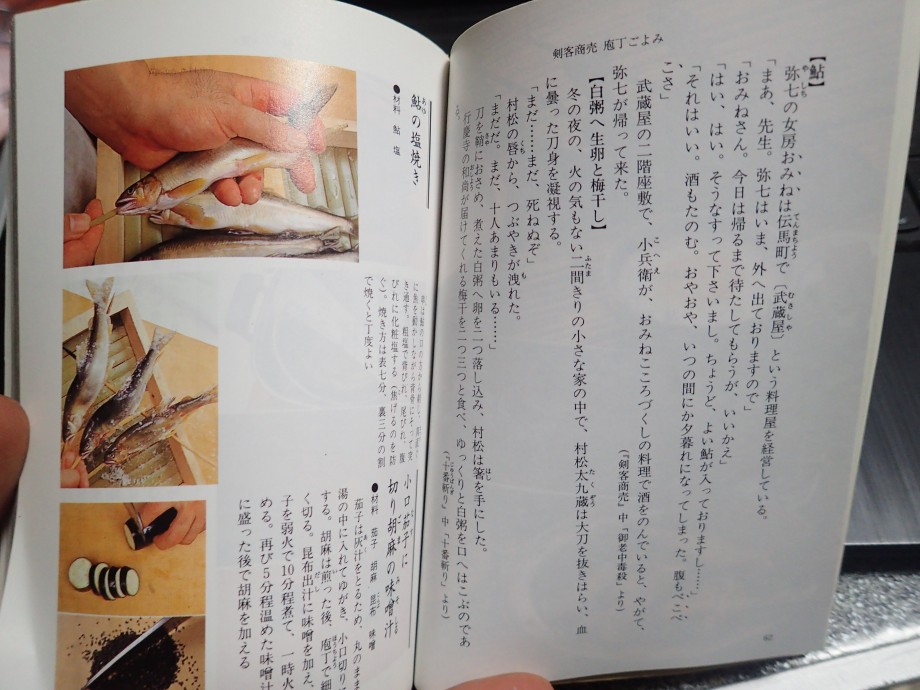 剣客商売 庖丁ごよみ
【鮎】
弥七の女房おみねは伝馬町で〔武蔵屋〕という料理屋を経営している。
「まあ、先生。弥七はいま、外へ出ておりますので」
「おみねさん。今日は帰るまで待たしてもらうが、いいかえ」
「はい、はい。そうなすって下さいまし。ちょうど、よい鮎が入っておりますし……」
「それはいい。酒もたのむ。おやおや、いつの間にか夕暮れになってしまった。腹もぺこぺ
こさ」
武蔵屋の二階座敷で、小兵衛が、おみねこころづくしの料理で酒をのんでいると、やがて、
弥七が帰って来た。
(『剣客商売』中「御老中毒殺」より)
【白粥へ生卵と梅干し】
冬の夜の、火の気もない二間きりの小さな家の中で、村松太九蔵は大刀を抜きはらい、血
に曇った刀身を凝視する。
「まだ……まだ、死ねぬぞ」
村松の唇から、つぶやきが洩れた。
「まだだ。まだ、十人あまりもいる……」
刀を鞘におさめ、煮えた白粥へ卵を二つ落し込み、村松は箸を手にした。
行慶寺の和尚が届けてくれる梅干を二つ三つと食べ、ゆっくりと白粥を口へはこぶのであ
る。
(『十番斬り』中「十番斬り」より)
62
鮎の塩焼き
●材料 鮎 塩
き通す。粗塩で背びれ、尾びれ、腹
びれに化粧塩する(焦げるのを防
ぐ)。焼き方は表七分、裏三分の割
で焼くと丁度よい
小口茄子に
切り胡麻の味噌汁
●材料 茄子 胡麻 昆布 味噌
茄子は灰汁をとるため、丸のまま
湯の中に入れてゆがき、小口切り
する。胡麻は煎った後、庖丁で細
く切る。昆布出汁に味噌を加え、
子を弱火で10分程煮て、一時火
める。再び5分程温めた味噌汁
に盛った後で胡麻を加える